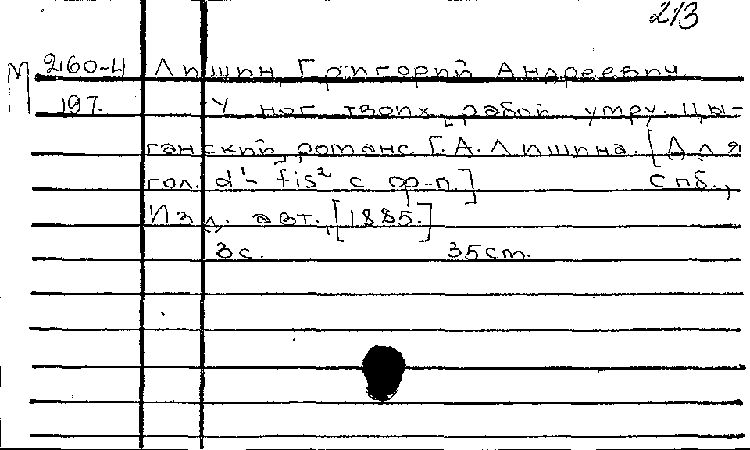 213
М 2160-4 Лишин, Григорий Андреевич
197. У ног твоих рабой умру. Цы-
ганский романс Г. А. Лишина. [Для
гол. d¹- fis² с ф-п.] Спб.,
Изд. авт., [1885.]
3с. 35ст.